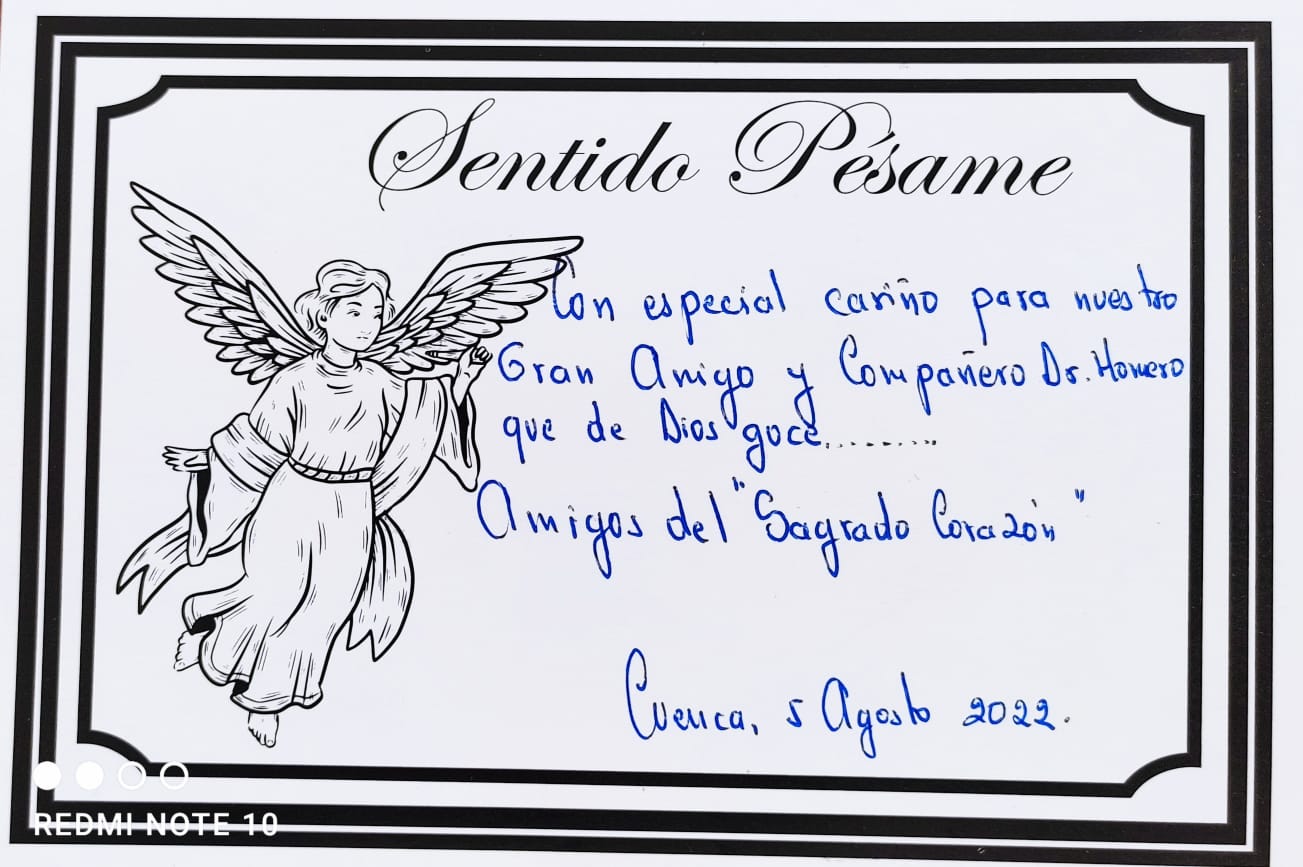 Sentido Pésame
Con especial cariño para nuestro
Gran Amigo y Compañero Dr. Homero
que de Dios goce.........
Amigos del "Sagrado Corazón"
Cuenca, 5 Agosto 2022.
REDMI NOTE 10